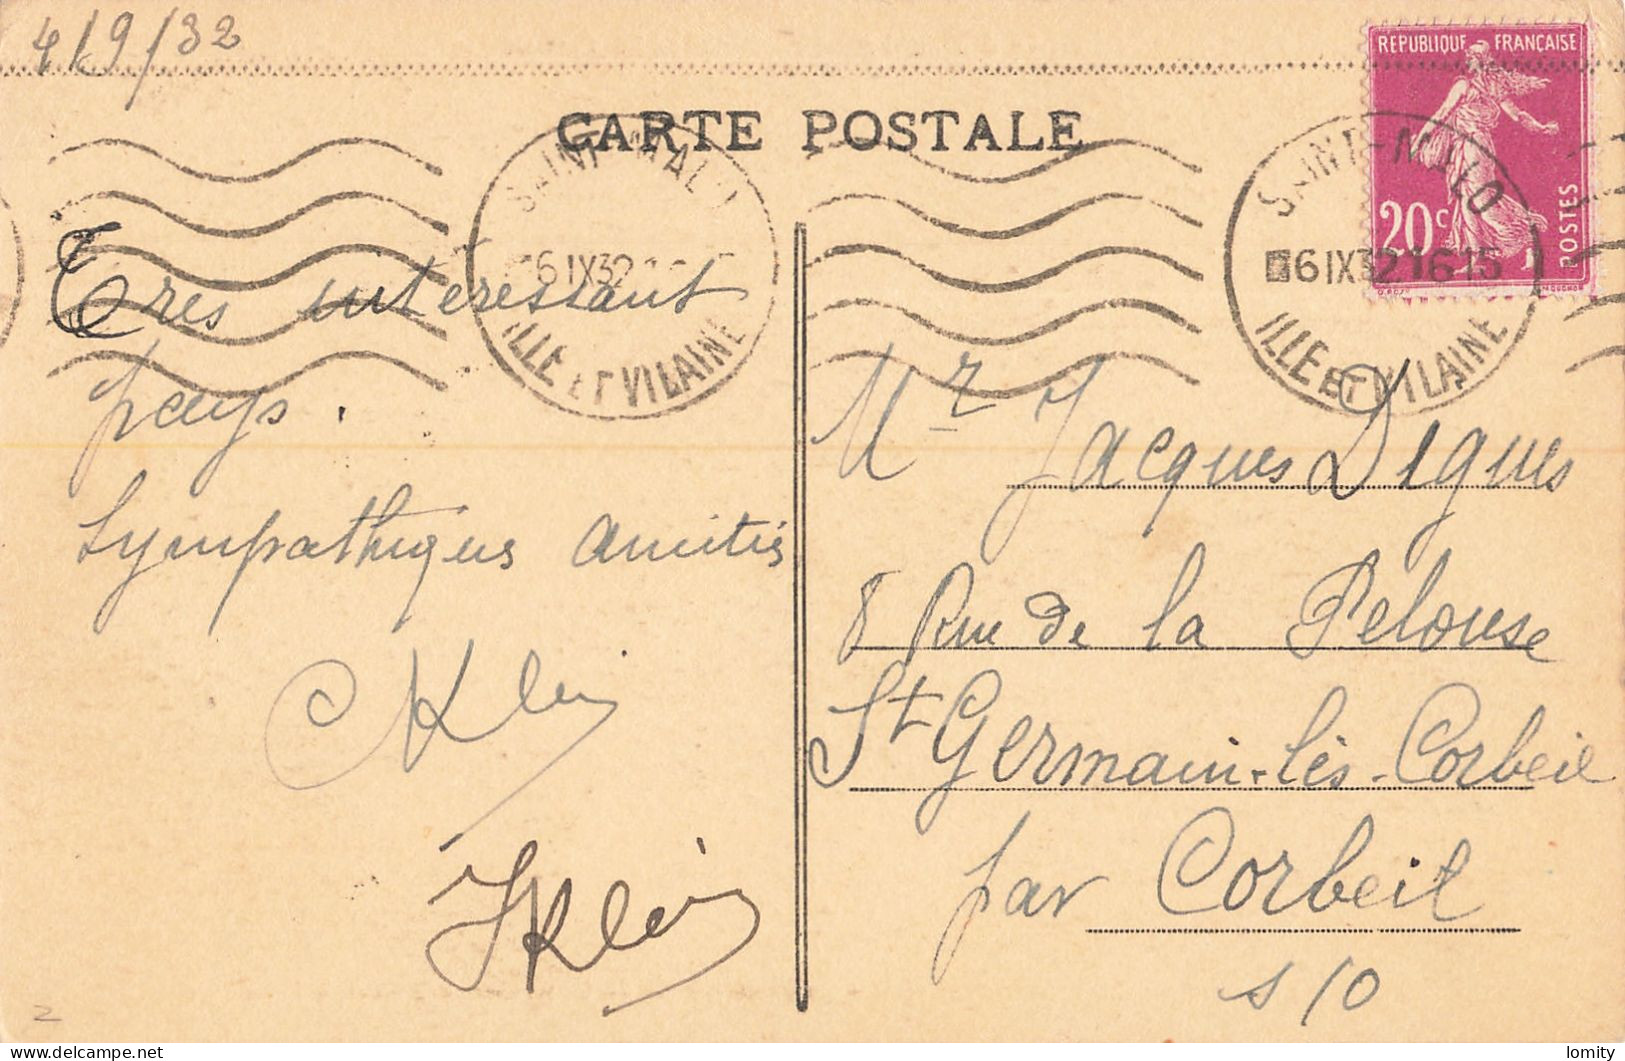 4/9/32
CARTE POSTALE
REPUBLIQUE FRANÇAISE
20c
POSTES
SAINT-MALO
6 IX 32
ILLE ET VILAINE
SAINT-MALO
6 IX 32 16 15
ILLE ET VILAINE
Tres interessant
pays.
Sympathiques amitiés
Klein
Klein
Mr Jacques Digues
8 Rue de la Pelouse
St Germain-lès-Corbeil
par Corbeil
s/o
2
delcampe.net
lomity